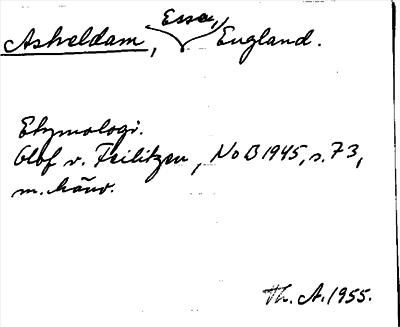 Askeldam, Essex, England.
Etymologi.
Olof v. Feilitzen, NoB 1945, s. 73,
m. hänv.
Th. A. 1955.